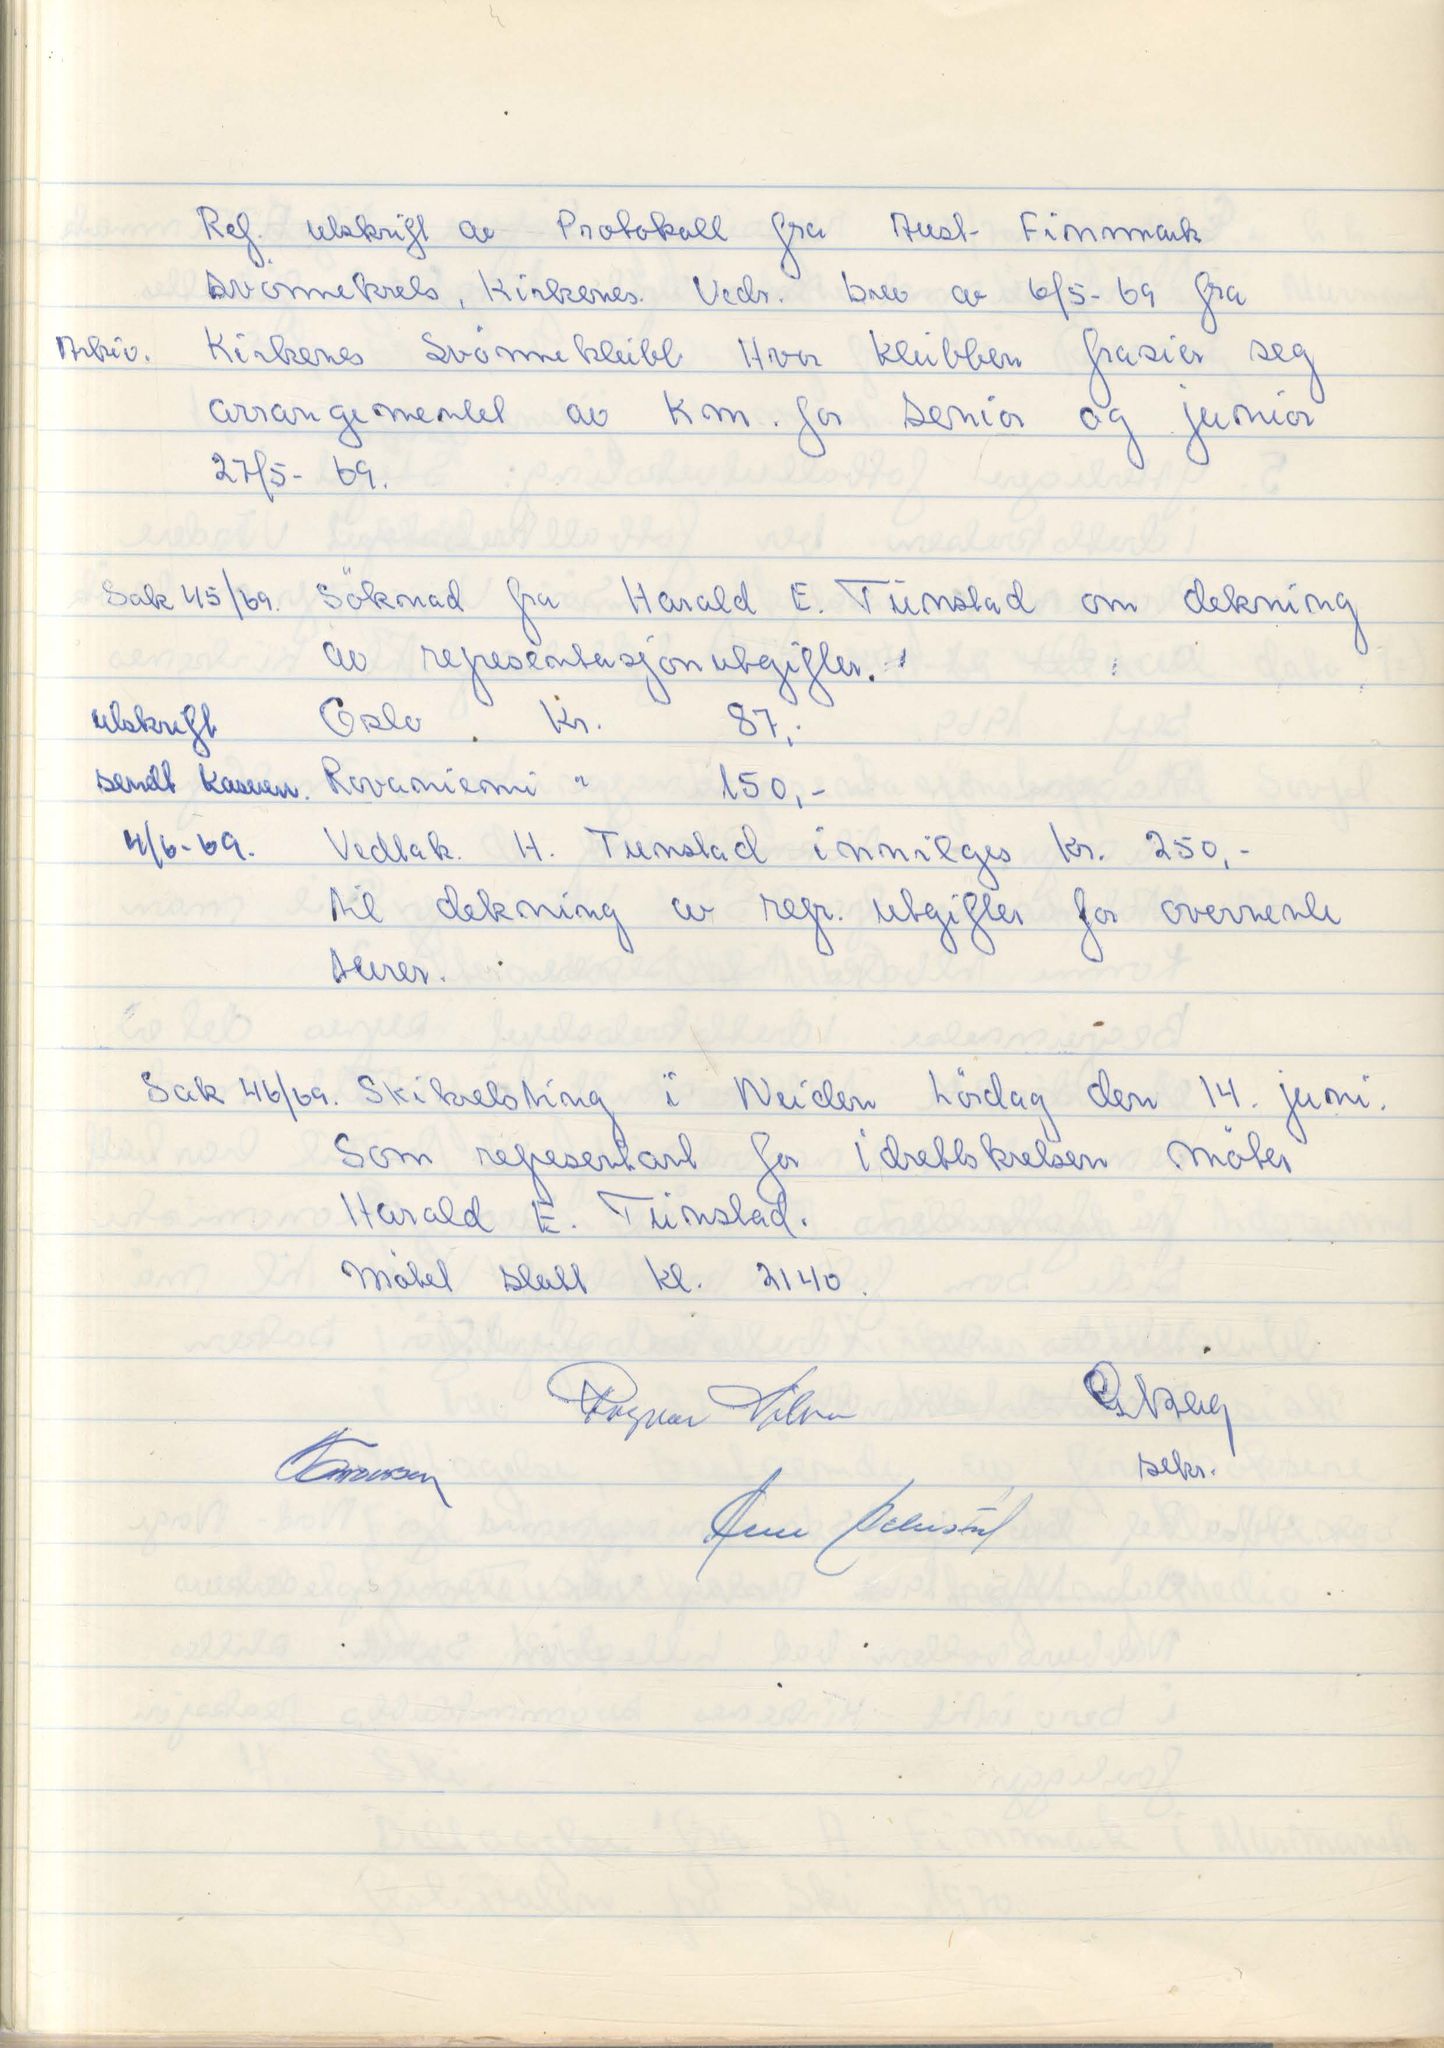 Ref. utskrift av Protokoll fra Aust-Finnmark
svömmekrets, Kirkenes. Vedr. brev av 6/5-69 fra
Arkiv. Kirkenes Svömmeklubb Hvor klubben frasier seg
arrangementet av Km. for senior og junior
27/5-69.
Sak 45/69. Söknad fra Harald E. Tunstad om dekning
av representasjonutgifter.
utskrift Oslo Kr. 87,-
sendt kasser. Rovaniemi " 150,-
4/6-69. Vedtak. H. Tunstad innvilges Kr. 250,-
til dekning av repr. utgifter for overnente
turer.
Sak 46/69. Skikretsting i Neiden Lördag den 14. juni.
Som representant for idrettskretsen möter
Harald E. Tunstad.
Mötet slutt kl. 2140.
Ragnar
sekr.
Arne